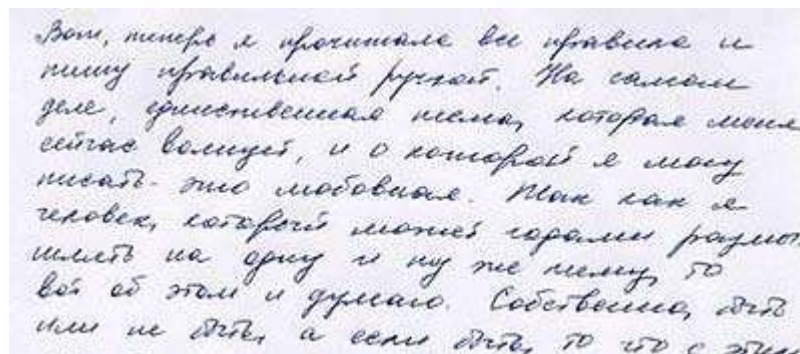 Вот, теперь я прочитала все правила и
пишу правильной ручкой. На самом
деле, единственная тема, которая меня
сейчас волнует, и о которой я могу
писать - это любовная. Так как я
человек, который может годами размыш
шлять на одну и ту же тему, то
вот об этом и думаю. Собственно, быть
или не быть, а если быть, то что с этим